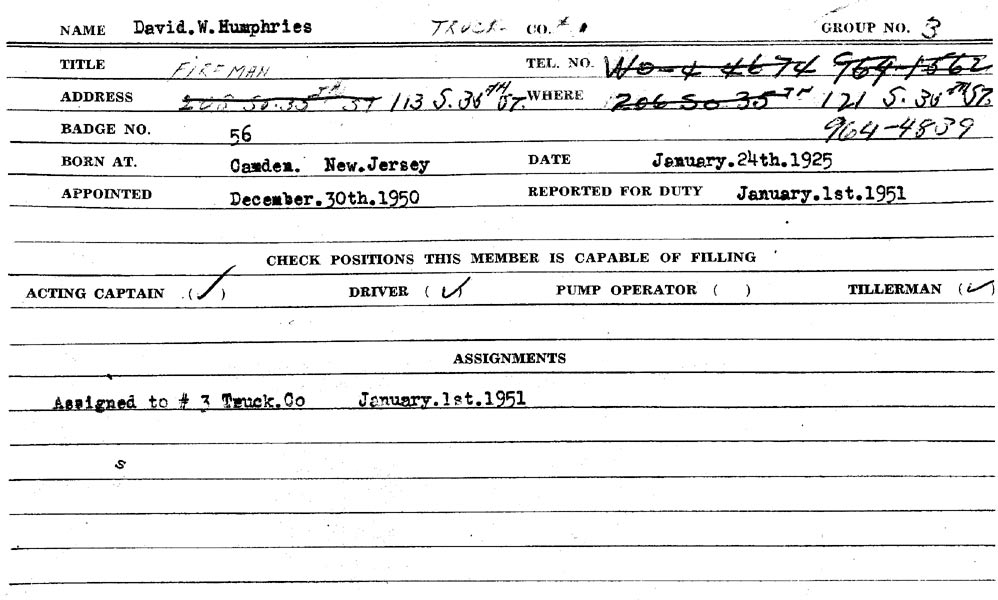 NAME David.W.Humphries TRUCK CO. # GROUP NO. 3
TITLE FIREMAN TEL. NO. WO-4 4674 964-1562
ADDRESS So. 35TH ST 113 S. 36TH ST. WHERE 206 So 35TH 121 S. 36TH ST.
BADGE NO. 56 964-4839
BORN AT. Camden. New.Jersey DATE January.24th.1925
APPOINTED December.30th.1950 REPORTED FOR DUTY January.1st.1951
CHECK POSITIONS THIS MEMBER IS CAPABLE OF FILLING
ACTING CAPTAIN (✓) DRIVER (✓) PUMP OPERATOR ( ) TILLERMAN (✓)
ASSIGNMENTS
Assigned to # 3 Truck.Co January.1st.1951
s